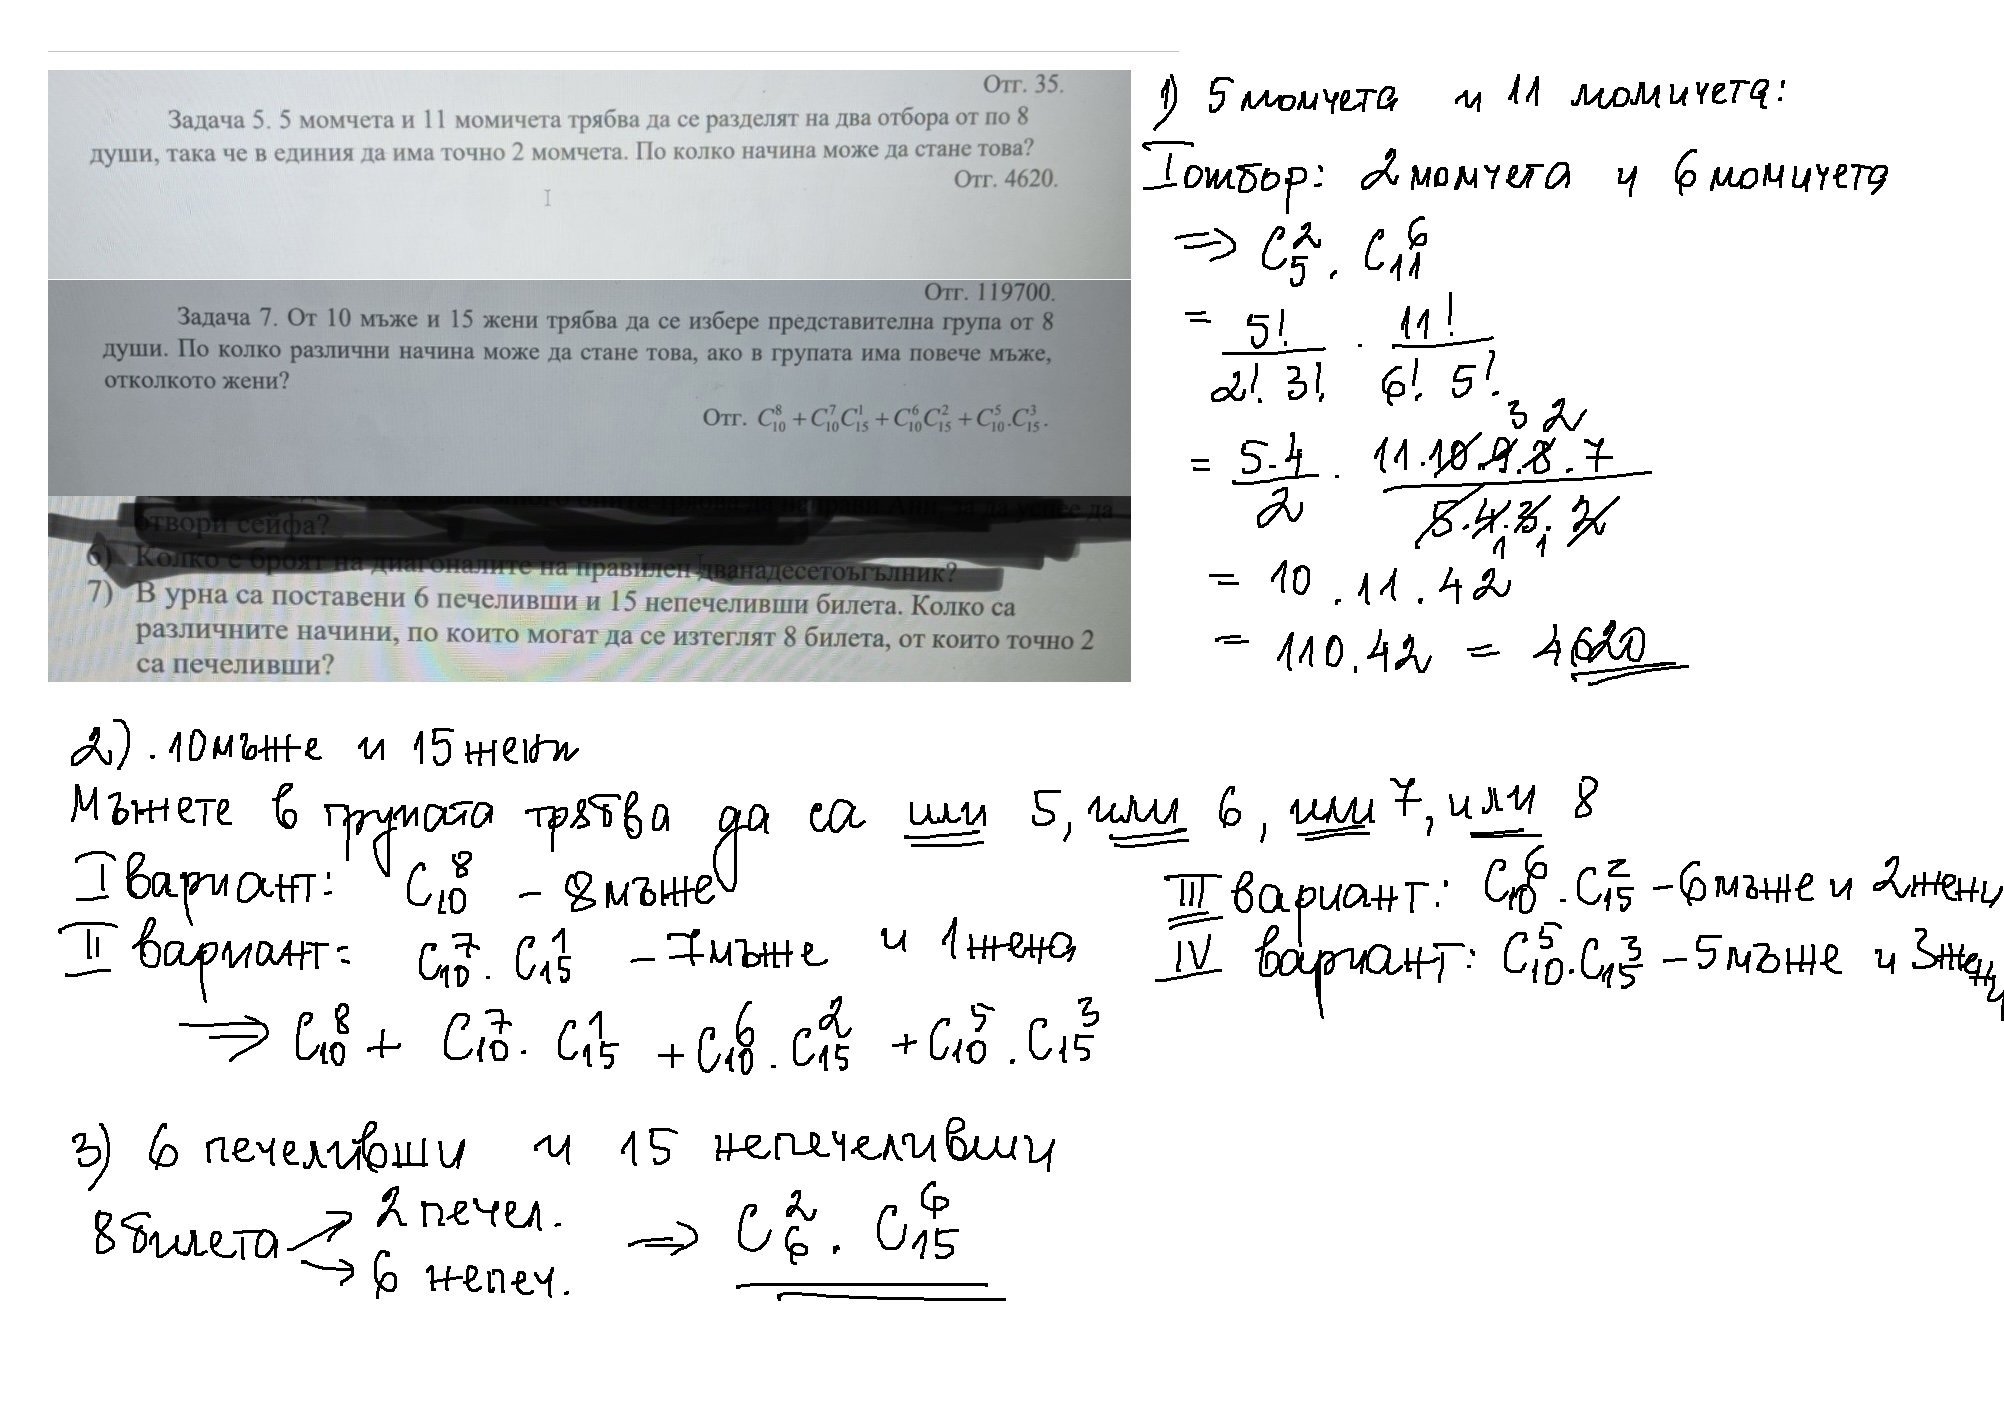 Отг. 35.
Задача 5. 5 момчета и 11 момичета трябва да се разделят на два отбора от по 8
души, така че в единия да има точно 2 момчета. По колко начина може да стане това?
Отг. 4620.
Отг. 119700.
Задача 7. От 10 мъже и 15 жени трябва да се избере представителна група от 8
души. По колко различни начина може да стане това, ако в групата има повече мъже,
отколкото жени?
Отг. C₁₀⁸ + C₁₀⁷C₁₅¹ + C₁₀⁶C₁₅² + C₁₀⁵.C₁₅³.
отвори сейфа?
6) Колко е броят на диагоналите на правилен дванадесетоъгълник?
7) В урна са поставени 6 печеливши и 15 непечеливши билета. Колко са
различните начини, по които могат да се изтеглят 8 билета, от които точно 2
са печеливши?
1) 5 момчета и 11 момичета:
I отбор: 2 момчета и 6 момичета
⇒ C₅² . C₁₁⁶
= 5!/(2! 3!) . 11!/(6! 5!)
3 2
= 5.4/2 . 11.10.9.8.7/(5.4.3.2)
1 1
= 10 . 11 . 42
= 110.42 = 4620
2) . 10 мъже и 15 жени
Мъжете в групата трябва да са или 5, или 6, или 7, или 8
I вариант: C₁₀⁸ – 8 мъже
II вариант: C₁₀⁷ . C₁₅¹ – 7 мъже и 1 жена
III вариант: C₁₀⁶ . C₁₅² – 6 мъже и 2 жени
IV вариант: C₁₀⁵ . C₁₅³ – 5 мъже и 3 жени
⇒ C₁₀⁸ + C₁₀⁷ . C₁₅¹ + C₁₀⁶ . C₁₅² + C₁₀⁵ . C₁₅³
3) 6 печеливши и 15 непечеливши
8 билета → 2 печел.
→ 6 непеч.
⇒ C₆² . C₁₅⁶